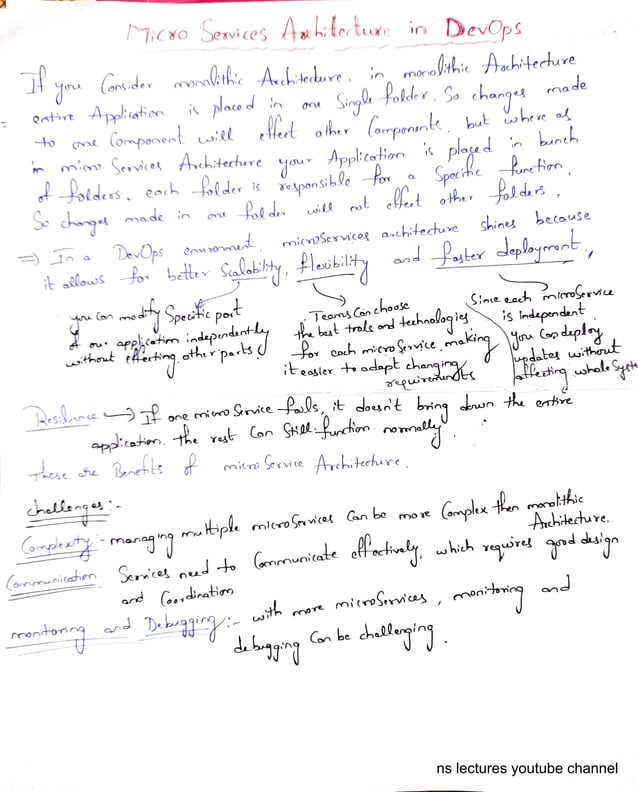 Micro Services Architecture in DevOps
If you Consider monolithic Architecture. in monolithic Architecture
entire Application is placed in one Single folder. So changes made
to one Component will effect other Components. but where as
in micro Services Architecture your Application is placed in bunch
of folders. each folder is responsible for a Specific function.
So changes made in one folder will not effect other folders.
=> In a DevOps environment, microservices architecture shines because
it allows for better Scalability, flexibility and faster deployment.
you can modify Specific part
of our application independently
without effecting other parts
Teams Can choose
the best tools and technologies
for each microService, making
it easier to adapt changing
requirements
Since each microservice
is independent
you Can deploy
updates without
affecting whole System
Resilience → If one micro Service fails, it doesn't bring down the entire
application. the rest Can Still function normally.
These are Benefits of microService Architecture.
challenges :-
Complexity :- managing multiple microServices Can be more Complex then monolithic
Architecture.
Communication: Services need to Communicate effectively, which requires good design
and Coordination
monitoring and Debugging :- with more microServices, monitoring and
debugging Can be challenging.
ns lectures youtube channel